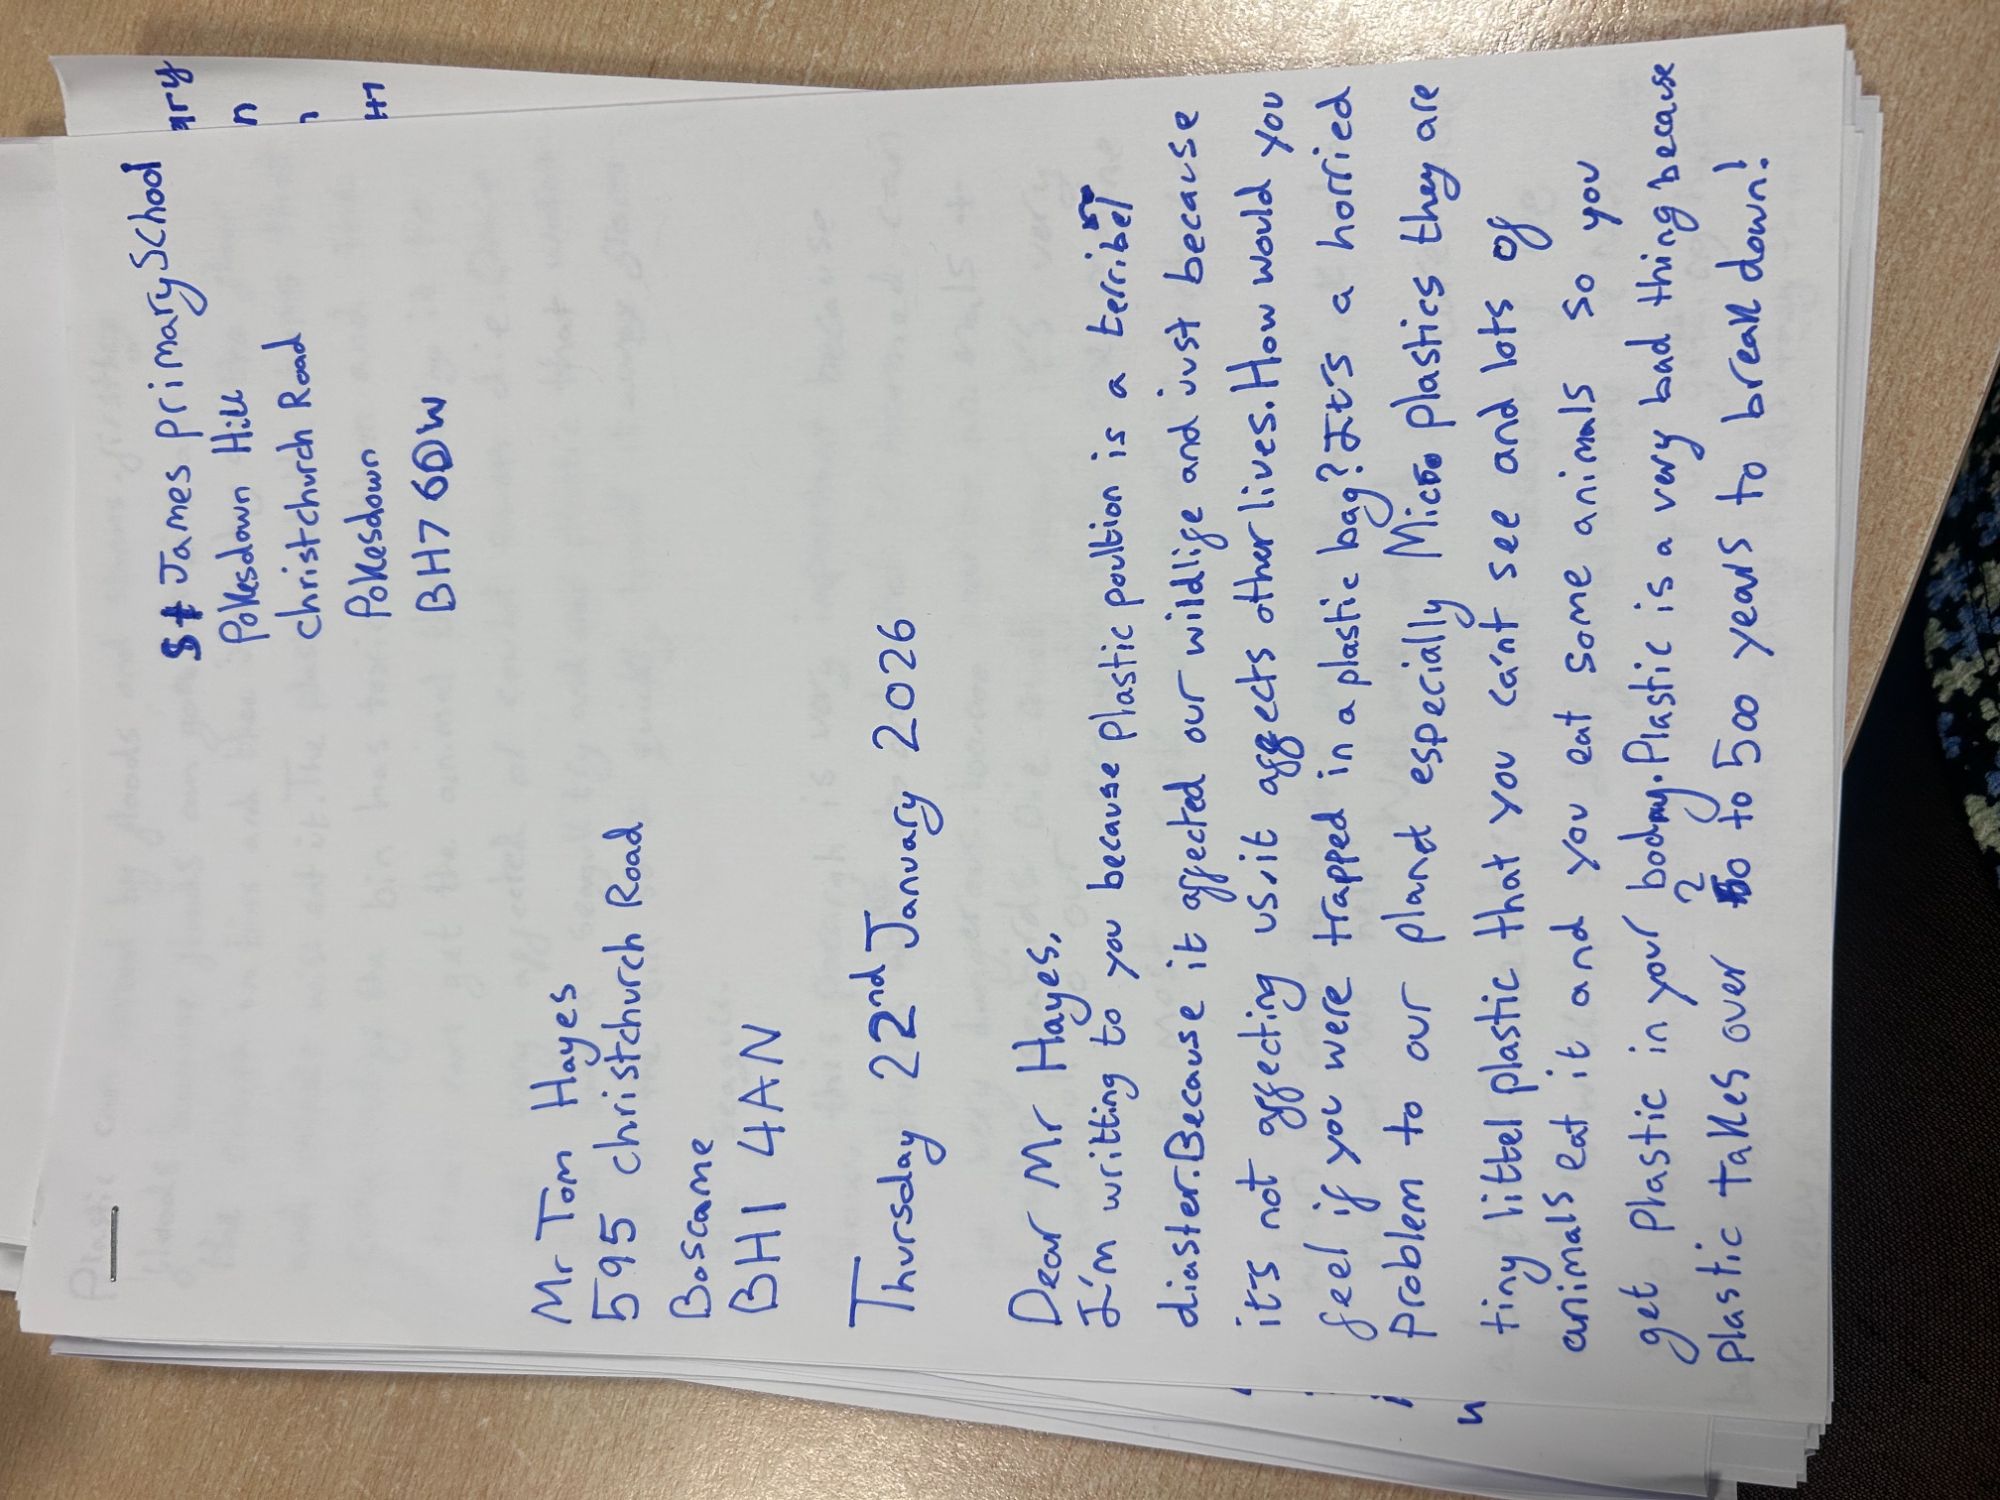 St James primary School
Pokesdown Hill
christchurch Road
Pokesdown
BH7 6DW
Mr Tom Hayes
595 christchurch Road
Boscame
BH1 4AN
Thursday 22nd January 2026
Dear Mr Hayes,
I'm writting to you because plastic poultion is a terribel
diaster. Because it affected our wildlife and just because
it's not affecting us, it affects other lives. How would you
feel if you were trapped in a plastic bag? It's a horried
problem to our planet especially Micro plastics they are
tiny littel plastic that you ca'nt see and lots of
animals eat it and you eat some animals so you
get plastic in your body. Plastic is a very bad thing because
plastic takes over 20 to 500 years to break down!